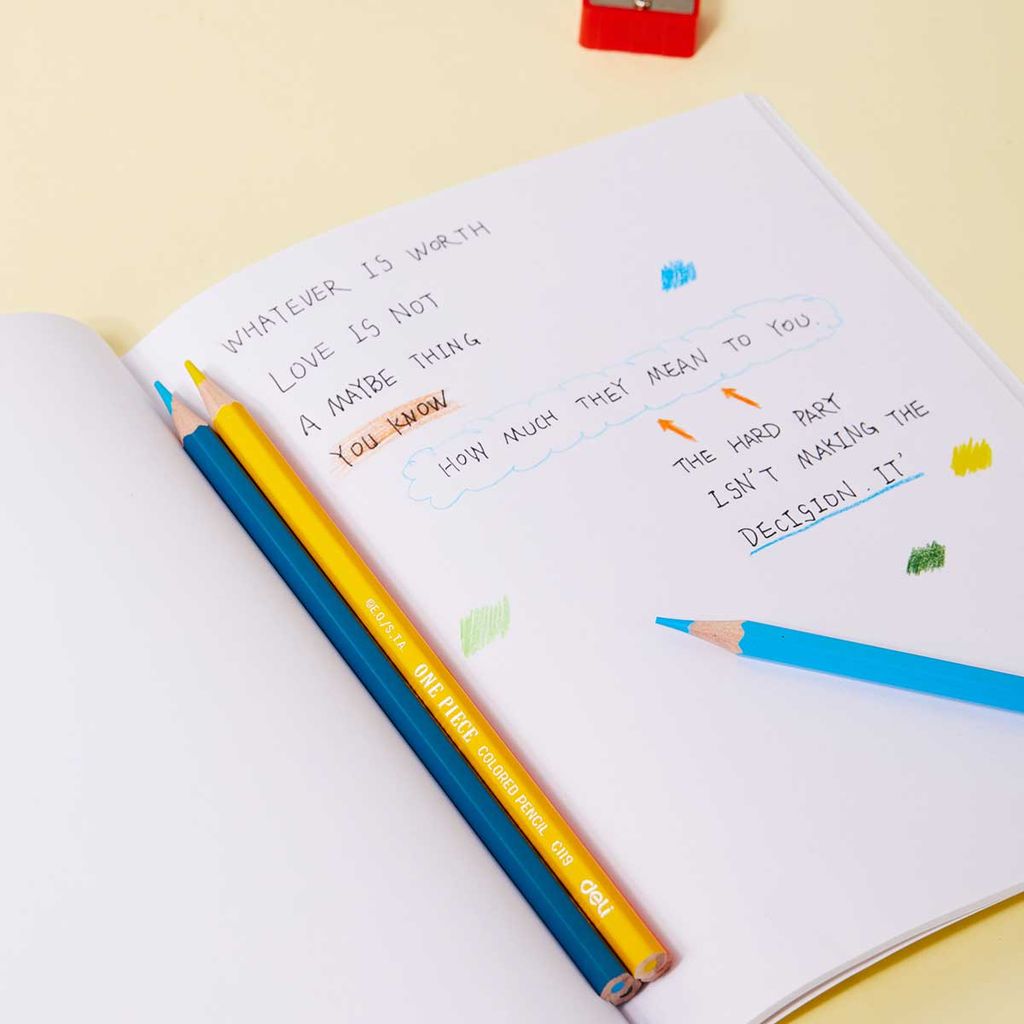 WHATEVER IS WORTH
LOVE IS NOT
A MAYBE THING
YOU KNOW
HOW MUCH THEY MEAN TO YOU.
THE HARD PART
ISN'T MAKING THE
DECISION. IT'
©E.O./S.,T.A.
ONE PIECE COLORED PENCIL C119 deli